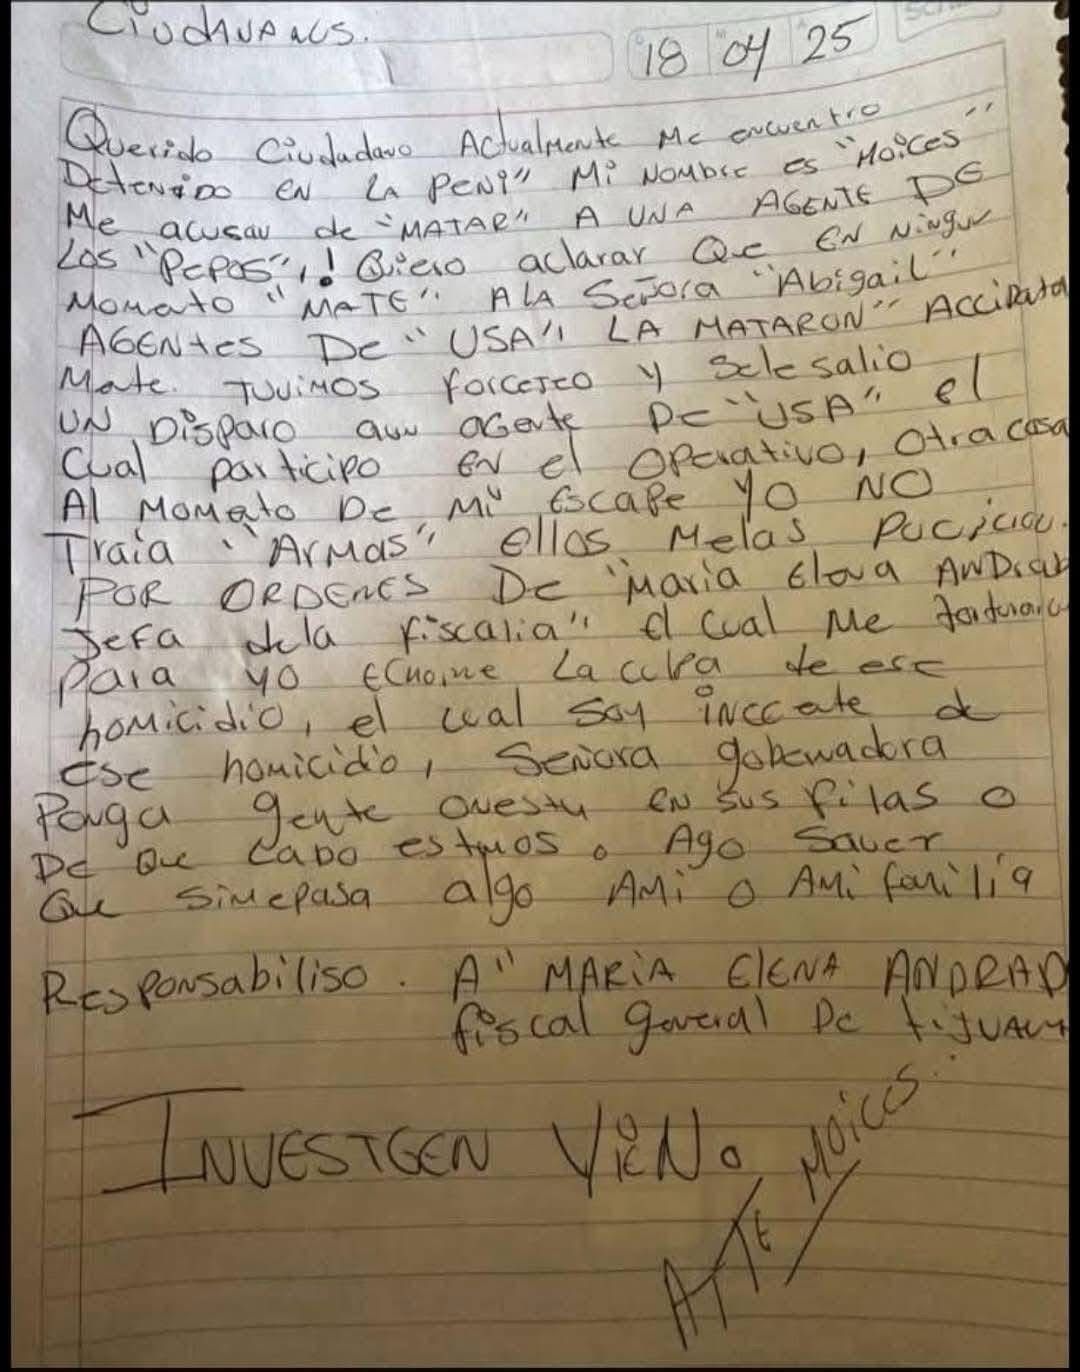 Ciudadanos.
18 04 25
Querido Ciudadano Actualmente Me encuentro
Detenido EN LA PENI" Mi NOMBre es "Moices"
Me acusan de "MATAR" A UNA AGENTE DE
Los "PEPOS",! Qiero aclarar Que EN Ningun
Momato "MATE" A LA Señora "Abigail"
AGENtes De "USA" LA MATARON" ACCiData
Mate. TUViMOS forcereo y Sele salio
UN Disparo aun agente De "USA" el
Cual participo EN el OPerativo, Otra cosa
Al Momato De Mi Escape YO NO
Traia "Armas" ellos Melas
POR ORDENES De "Maria Elena
Jefa dela fiscalia" el Cual Me
Para yo Echarme La culpa de ese
homicidio, el cual Soy de
Ese homicidio, Señora gobernadora
Ponga gente onesta en sus filas o
De Que Cabo estmos. Ago Saver
Que simepasa algo AMi o AMi familia
Responsabiliso. A" MARiA ElENA ANDRAD
fiscal general De
INVESTGEN ViEN.
ATTE Moices..